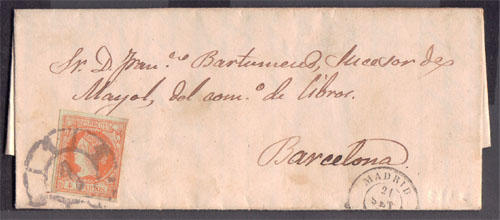 Sr. D. Fran.co Bartumeus, Sucesor de
Mayol, del com.o de libros.
Barcelona.
MADRID
21
SET